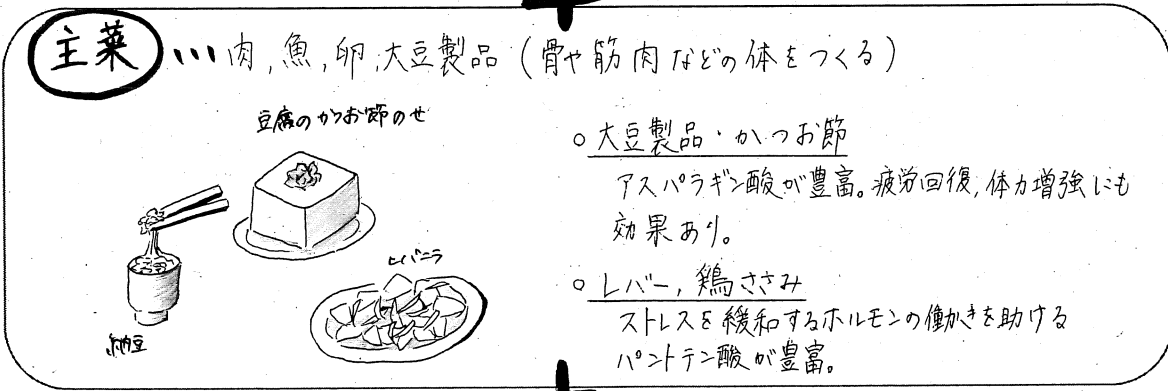 主菜…肉,魚,卵,大豆製品(骨や筋肉などの体をつくる)
豆腐のかつお節のせ
レバニラ
納豆
○大豆製品・かつお節
アスパラギン酸が豊富。疲労回復,体力増強にも
効果あり。
○レバー,鶏ささみ
ストレスを緩和するホルモンの働かきを助ける
パントテン酸が豊富。